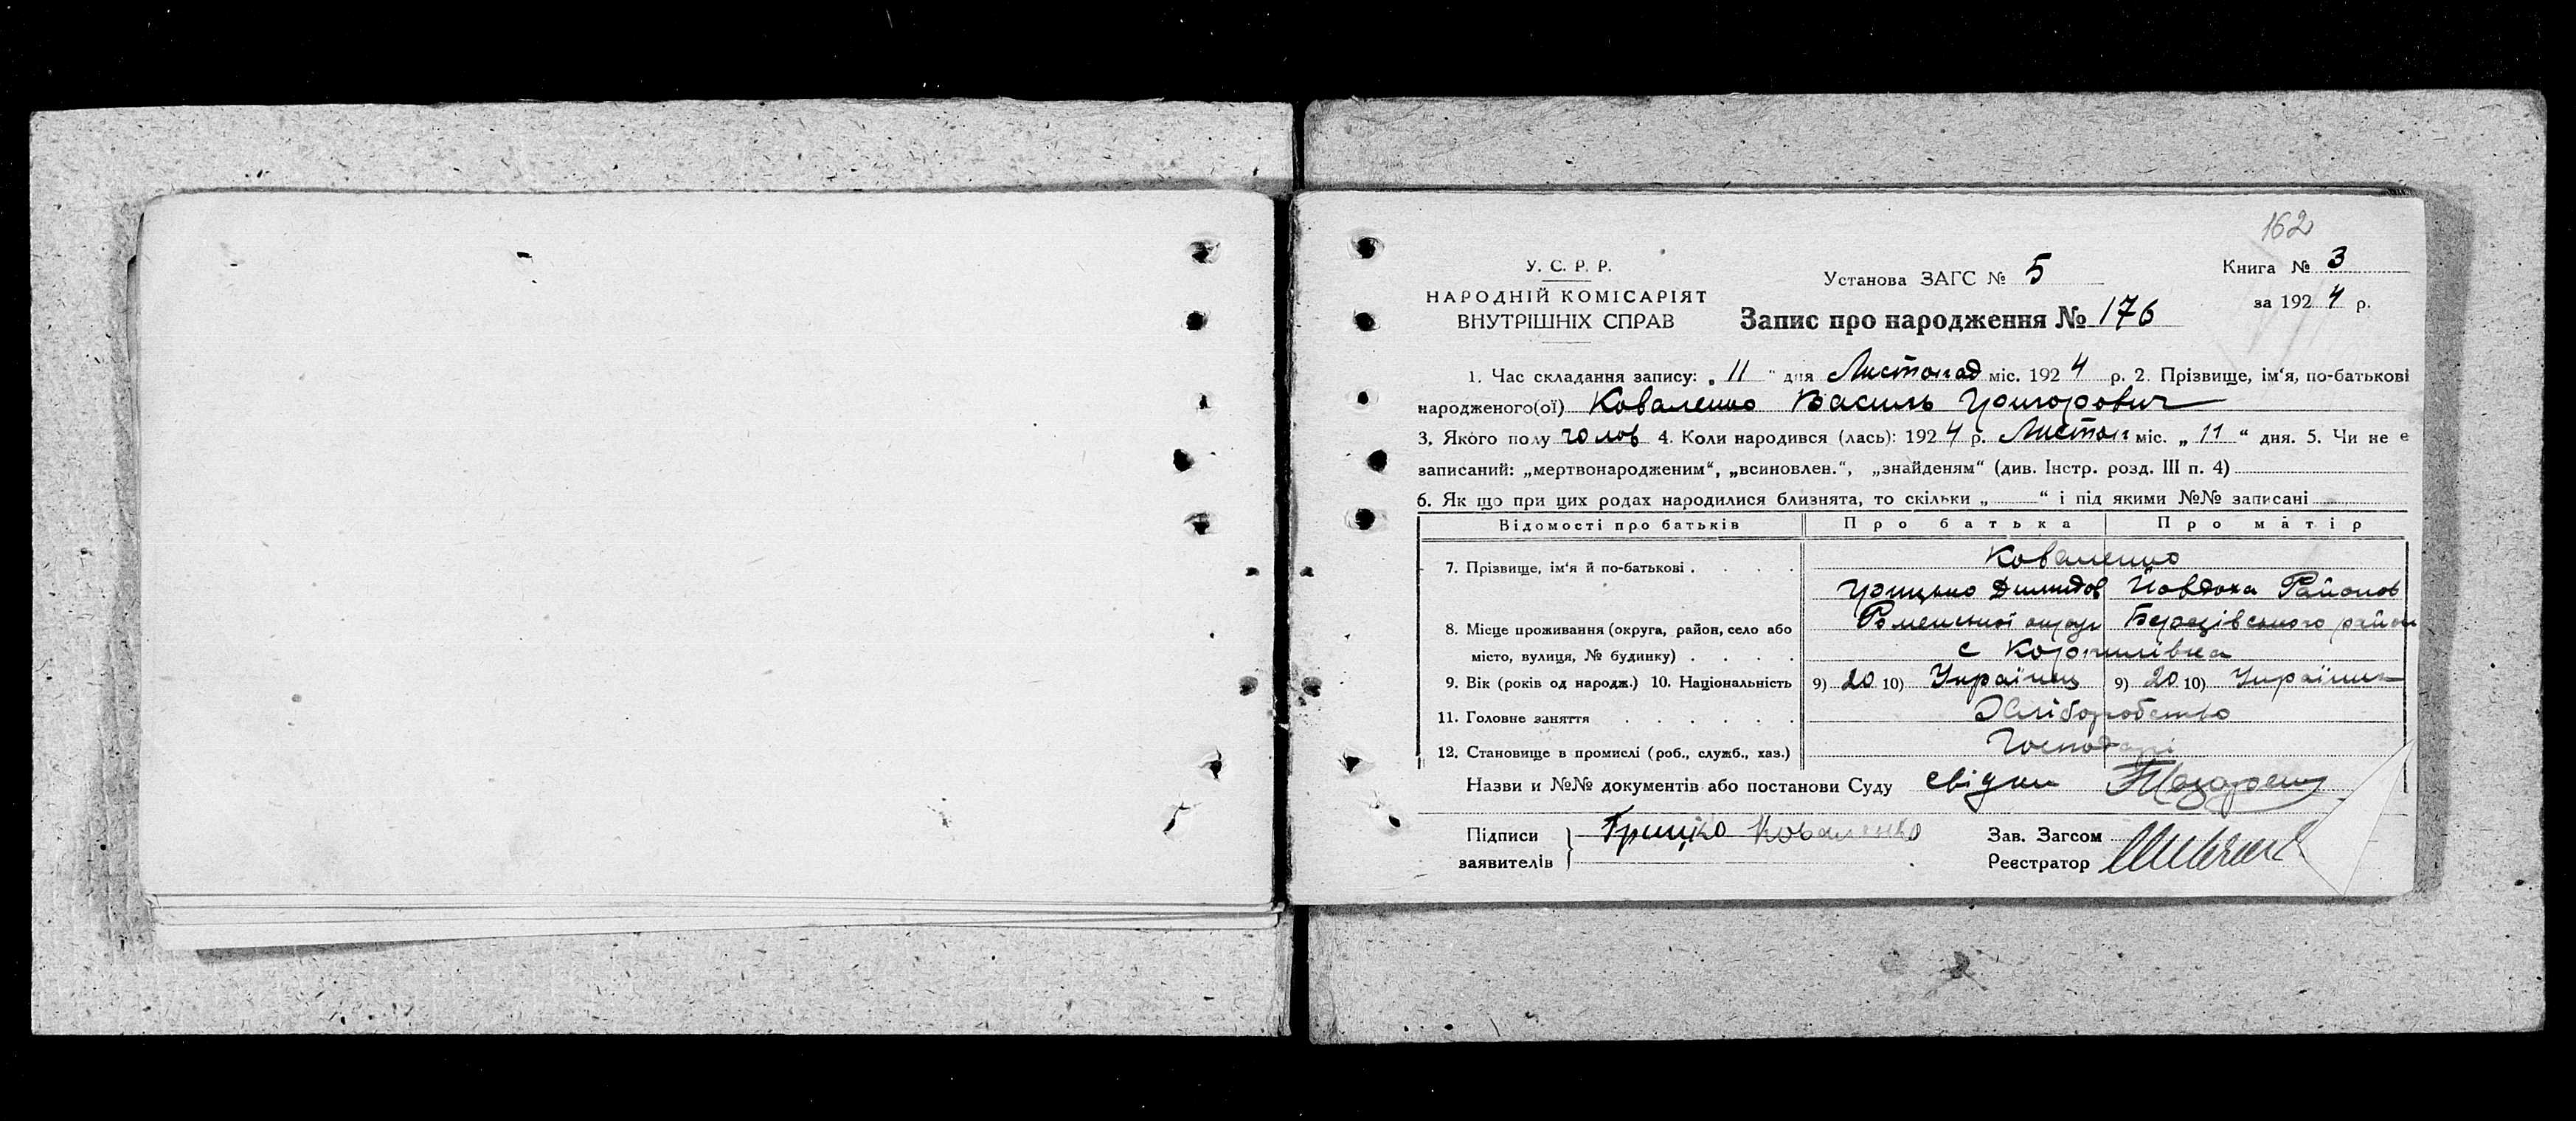 162
У. С. Р. Р.
НАРОДНІЙ КОМІСАРІЯТ
ВНУТРІШНІХ СПРАВ
Установа ЗАГС № 5
Запис про народження № 176
Книга № 3
за 1924 р.
1. Час складання запису: „11“ дня Листопад міс. 1924 р. 2. Прізвище, ім'я, по-батькові
народженого(ої) Коваленко Василь Григорович
3. Якого полу чолов 4. Коли народився (лась): 1924 р. Листоп міс. „11“ дня. 5. Чи не є
записаний: „мертвонародженим“, „всиновлен.“, „знайденям“ (див. Інстр. розд. III п. 4)
6. Як що при цих родах народилися близнята, то скільки „ “ і під якими №№ записані
Відомості про батьків Про батька Про матір
7. Прізвище, ім'я й по-батькові . . . . Коваленко
Грицько Йовдоха
8. Місце проживання (округа, район, село або Роменської округ Березівського район
місто, вулиця, № будинку) . . . . с
9. Вік (років од народж.) 10. Національність 9) 20 10) Українц 9) 20 10) Українк
11. Головне заняття . . . . . . Хліборобство
12. Становище в промислі (роб., служб., хаз.) Господарі
Назви и №№ документів або постанови Суду свідки
Підписи
заявителів
Грицко Коваленко
Зав. Загсом
Реєстратор